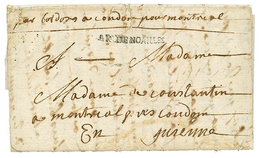 par Bordeaux a condom pour montreal
AR. DE NOAILLES
A Madame
Madame de constantin
a montreal pres condom
En guienne